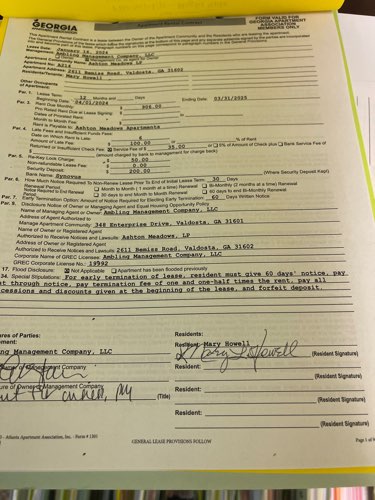 GEORGIA
APARTMENT
FORM VALID FOR
GEORGIA APARTMENT
ASSOCIATION
MEMBERS ONLY
This Apartment Rental Contract is a lease between the Owner of the Apartment Community and the Residents who are leasing the apartment.
Lease Date: January 16, 2024
Management: Ambling Management Company, LLC
Apartment Community Name: Ashton Meadows LP
Apartment No. A216
Apartment Address: 2611 Bemiss Road, Valdosta, GA 31602
Residents/Tenants: Mary Howell
Other Occupants
of Apartment:
Par. 1. Lease Term: 12 Months and Days
Beginning Date: 04/01/2024 Ending Date: 03/31/2025
Par. 3. Rent Due Monthly: 906.00
Pro Rated Rent Due at Lease Signing:
Dates of Prorated Rent:
Month to Month Fee:
Rent is Payable to: Ashton Meadows Apartments
Par. 4. Late Fees and Insufficient Funds Fees:
Date on Which Rent Is Late: 6
Amount of Late Fee: $ 100.00 or % of Rent
Returned or Insufficient Check Fee: Service Fee of $ 35.00 or 5% of Amount of Check plus Bank Service Fee of
$ (amount charged by bank to management for charge back)
Par. 5. Re-Key Lock Charge: $ 50.00
Non-refundable Fee: $ 0.00
Security Deposit: $ 200.00
Bank Name: Synovus (Where Security Deposit Kept)
Par. 6. How Much Notice Required To Non-Renew Lease Prior To End of Initial Lease Term: 30 Days
Renewal Period Month to Month (1 month at a time) Renewal Bi-Monthly (2 months at a time) Renewal
Notice Req'd to End Renewal 30 days to end Month to Month Renewal 60 days to end Bi-Monthly Renewal
Par. 7. Early Termination Option: Amount of Notice Required for Electing Early Termination: 60 Days Written Notice
Par. 8. Disclosure Notice of Owner or Managing Agent and Equal Housing Opportunity Policy
Name of Managing Agent or Owner: Ambling Management Company, LLC
Address of Agent Authorized to
Manage Apartment Community: 348 Enterprise Drive, Valdosta, GA 31601
Name of Owner or Registered Agent
Authorized to Receive Notices and Lawsuits: Ashton Meadows, LP
Address of Owner or Registered Agent
Authorized to Receive Notices and Lawsuits: 2611 Bemiss Road, Valdosta, GA 31602
Corporate Name of GREC Licensee: Ambling Management Company, LLC
GREC Corporate License No.: 19992
17. Flood Disclosure: Not Applicable Apartment has been flooded previously
34. Special Stipulations: For early termination of lease, resident must give 60 days' notice, pay
t through notice, pay termination fee of one and one-half times the rent, pay all
cessions and discounts given at the beginning of the lease, and forfeit deposit.
res of Parties:
ment:
ng Management Company, LLC
Residents:
Resident: Mary Howell
Mary Howell
(Resident Signature)
Resident:
(Resident Signature)
ure of Owner/Management Company
(Title)
Resident:
(Resident Signature)
Resident:
(Resident Signature)
Atlanta Apartment Association, Inc. - Form # 1301
GENERAL LEASE PROVISIONS FOLLOW
Page 1 of 9